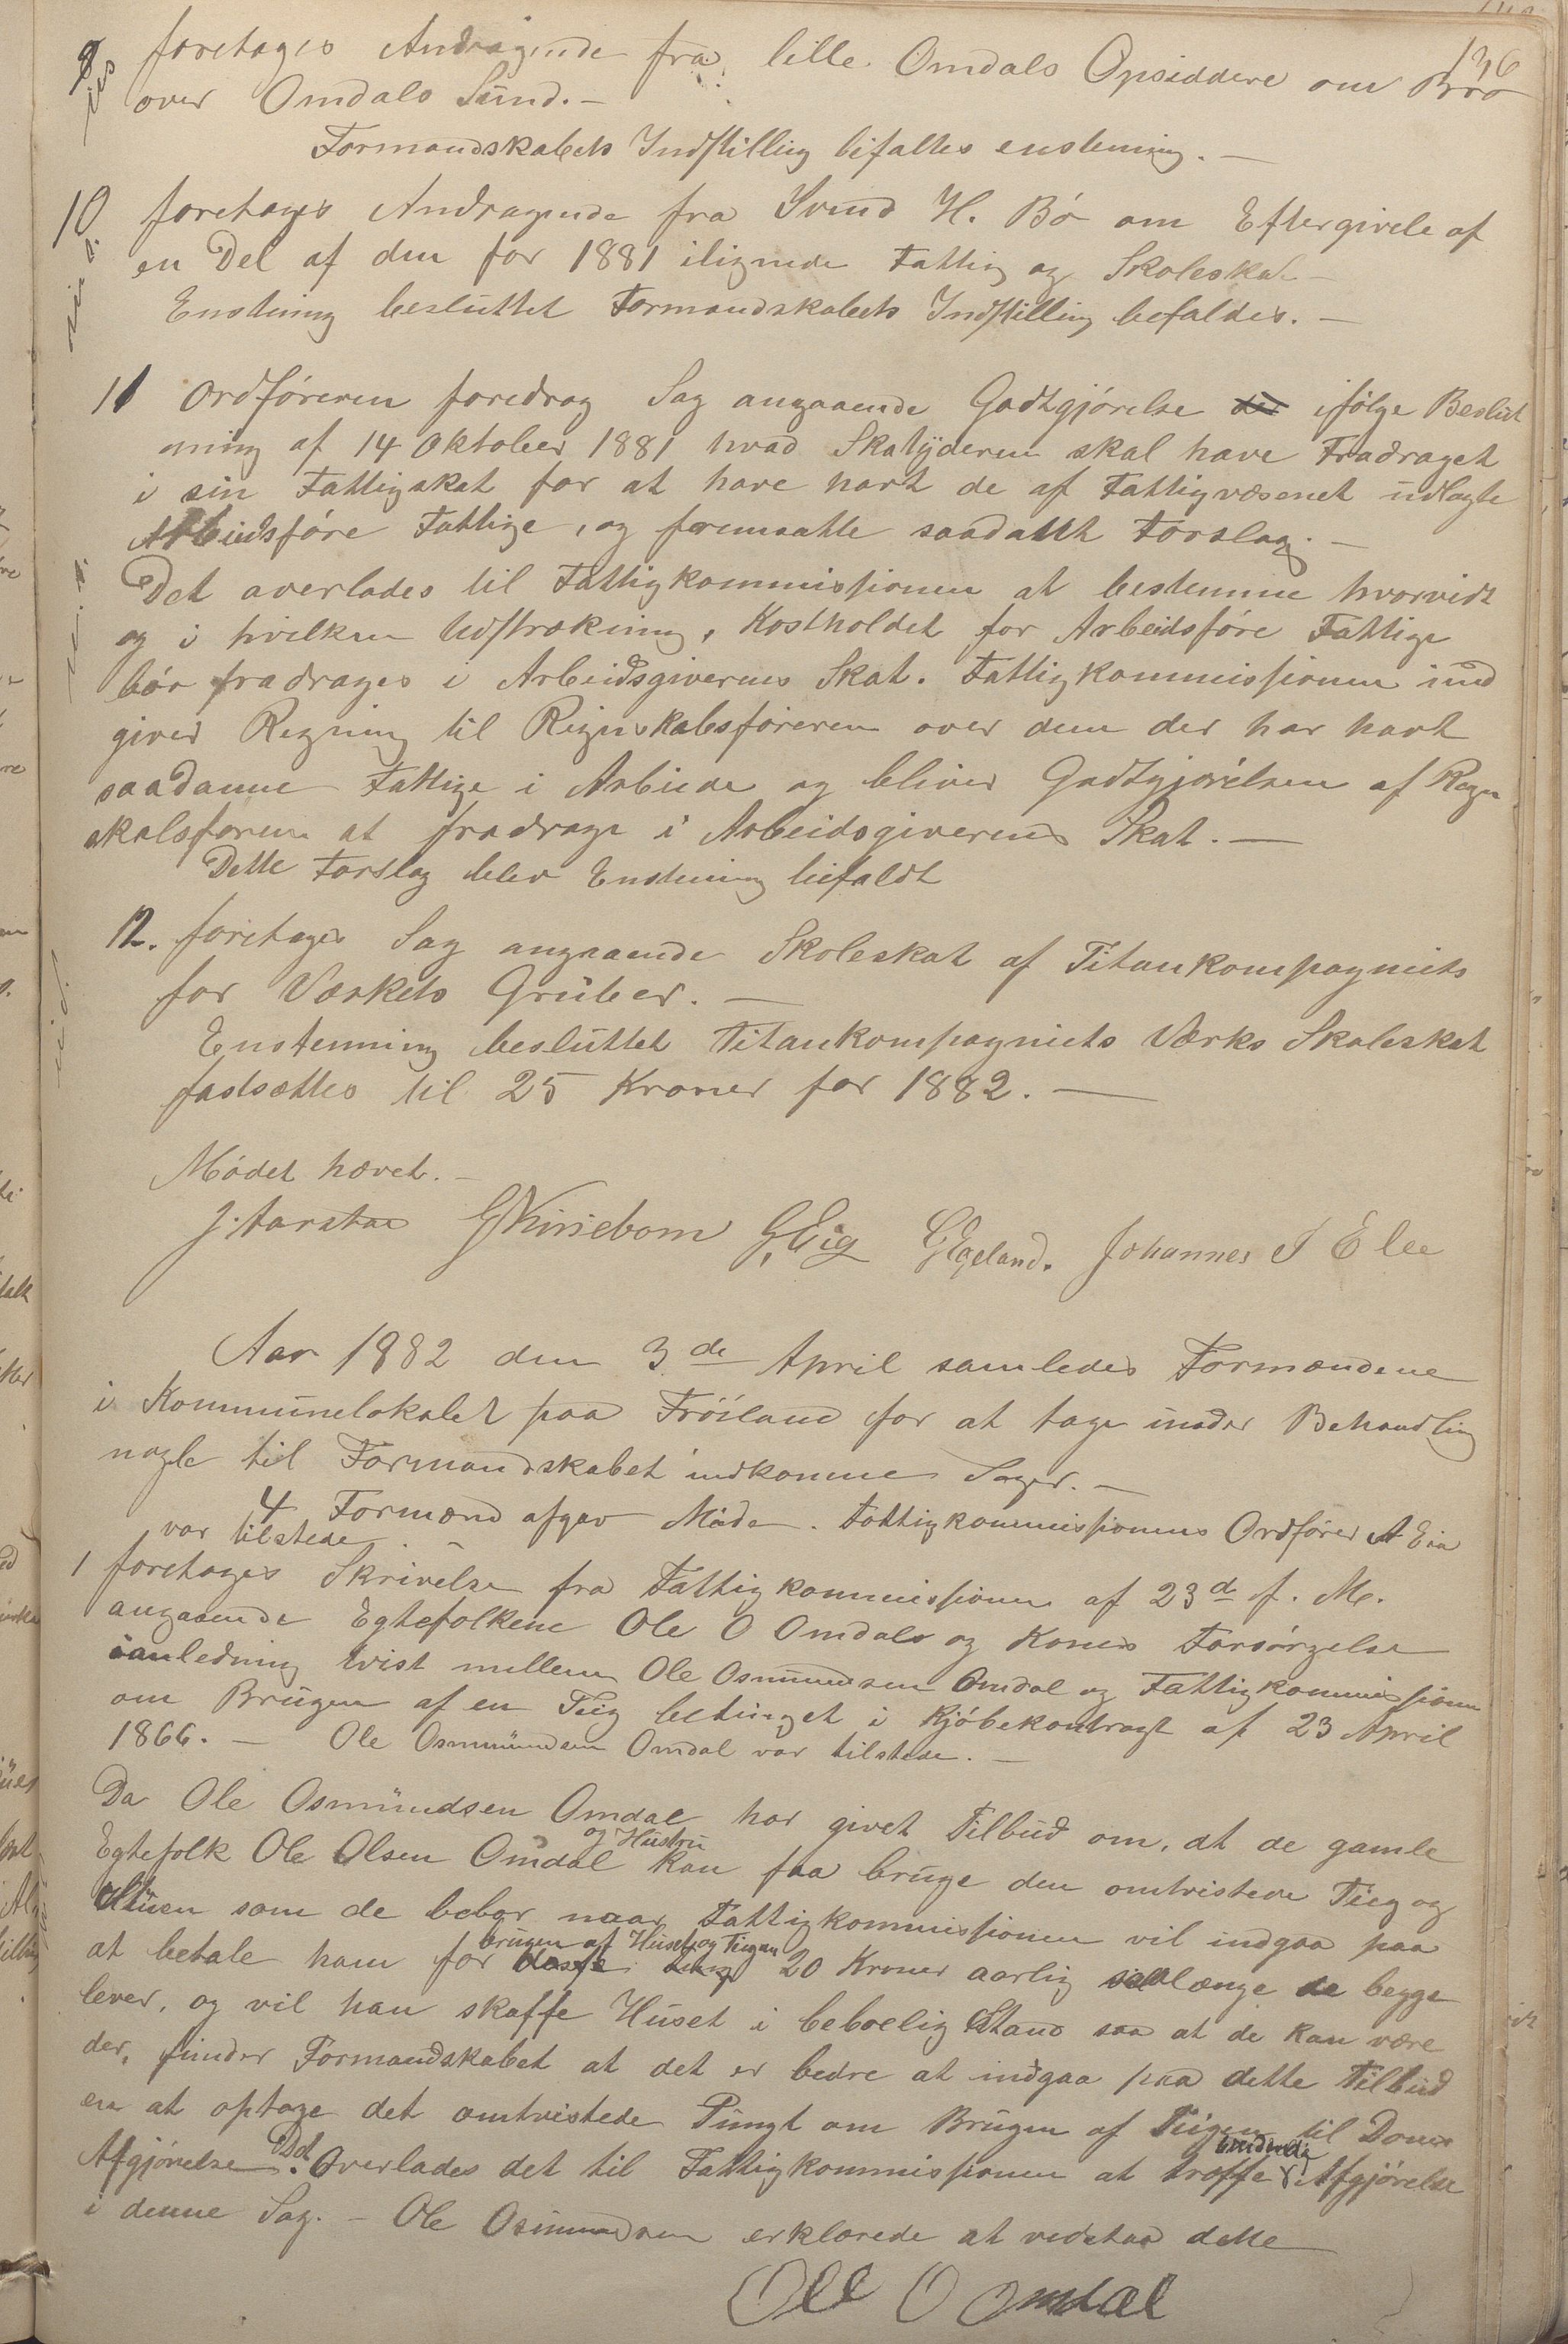 136
9 foretages Andragende fra lille Omdals Opsiddere om Bro
over Omdals Sund. –
Formandskabets Indstilling bifaltes enstemig. –
10 foretoges Andragende fra Svend H. Bö om Eftergivele af
en Del af den for 1881 ilignede Fattig og Skoleskat –
Enstemig besluttet Formandskabets Indstilling befaldes. –
11 Ordföreren foredrog Sag angaaende Godtgjörelse ifölge Beslut
ning af 14 Oktober 1881 hvad Skatyderen skal have Fradraget
i sin Fattigskat for at have havt de af Fattigvæsenet udlagte
Arbeidsföre Fattige, og fremsatte saadattt Forslag. –
Det overlades til Fattigkommissionen at bestemme hvorvidt
og i hvilken Udstrækning, Kostholdet for Arbeidsföre Fattige
bör fradrages i Arbeidsgiverens Skat. Fattigkommissionen ind
giver Regning til Regnskabsföreren over dem der har havt
saadanne Fattige i Arbeide og bliver Godtgjörelsen af Regn
skabsföreren at fradrage i Arbeidsgiverens Skat. –
Dette Forslag blev Enstemig bifaldt
12. foretoges Sag angaaende Skoleskat af Titankompagniets
for Værkets Gruber. –
Enstemmig besluttet Titankompagniets Værks Skoleskat
fastsættes til 25 Kroner for 1882. –
Mödet hævet. –
J. Aarstae G Kirsebom G. Eig G Egeland. Johannes S Elee
Aar 1882 den 3de April samledes Formændene
i Kommunelokalet paa Fröiland for at tage under Behandling
nogle til Formandskabet indkomne Sager. –
4 Formænd afgav Möde. Fattigkommissionens Ordförer A Eia
var tilstede
1 foretoges Skrivelse fra Fattigkommissionen af 23d f. M.
angaaende Egtefolkene Ole O Omdals og Kones Forsörgelse
ianledning tvist mellem Ole Osmundsen Omdal og Fattigkommissionen
om Brugen af en Teig betinget i Kjöbekontragt af 23 April
1866. – Ole Osmundsen Omdal var tilstede. –
Da Ole Osmundsen Omdal har givet Tilbud om, at de gamle
og Hustru
Egtefolk Ole Olsen Omdal kan faa bruge den omtvistede Tieg og
Stuen som de bebor naar Fattigkommissionen vil indgaa paa
brugen af Huset og Tiegen
at betale ham for 20 Kroner aarlig saalænge de begge
lever, og vil han skaffe Huset i beboelig Stand saa at de kan være
der, finder Formandskabet at det er bedre at indgaa paa dette Tilbud
en at optage det omtvistede Pungt om Brugen af Tiegen til Doms
endelig
Afgjörelse. Dset Overlades det til Fattigkommissionen at træffe Afgjörelse
i denne Sag. – Ole Osmundsen erklærede at vedstaa dette
Ole O Omdal